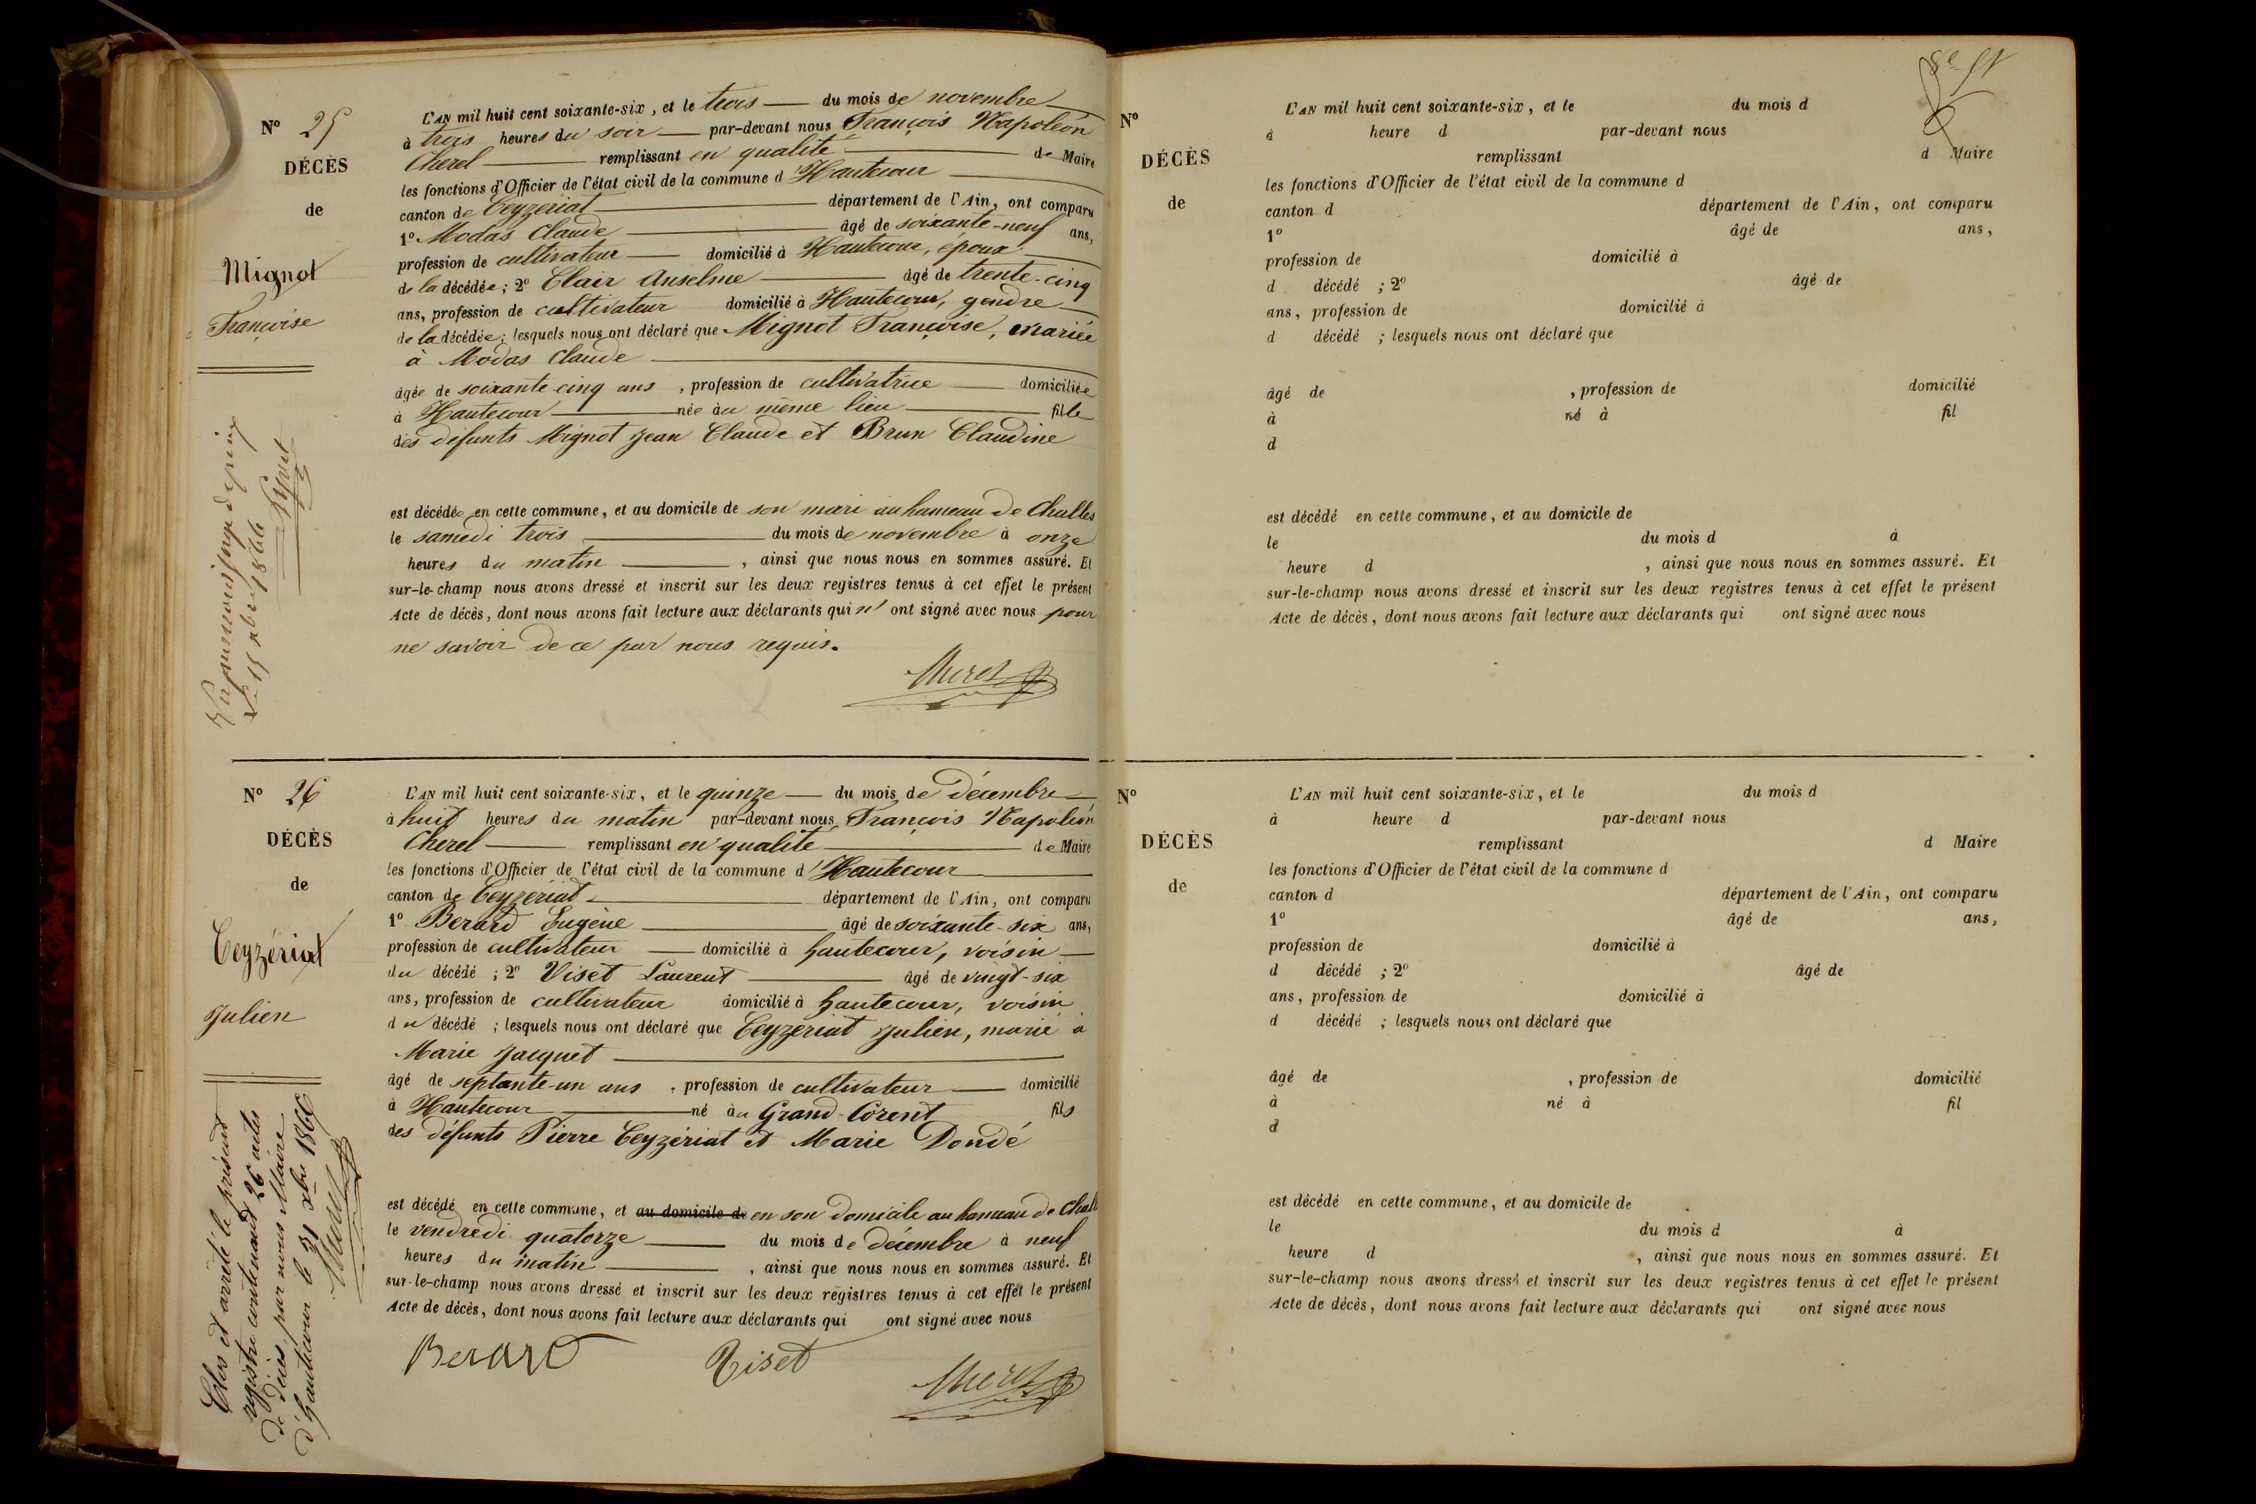 N° 25
DÉCÈS
de
Mignot
Françoise
L'AN mil huit cent soixante-six, et le trois du mois de novembre
à trois heures du soir par-devant nous François Napoléon
Cherel remplissant en qualité de Maire
les fonctions d'Officier de l'état civil de la commune d'Hautecour
canton de Ceyzeriat département de l'Ain, ont comparu
1° Modas Claude âgé de soixante-neuf ans,
profession de cultivateur domicilié à Hautecour, époux
de la décédée; 2° Clair Anselme âgé de trente-cinq
ans, profession de cultivateur domicilié à Hautecour, gendre
de la décédée; lesquels nous ont déclaré que Mignot Françoise, mariée
à Modas Claude
âgée de soixante cinq ans, profession de cultivatrice domiciliée
à Hautecour née au même lieu fille
des défunts Mignot Jean Claude et Brun Claudine
est décédée en cette commune, et au domicile de son mari au hameau de Challes
le samedi trois du mois de novembre à onze
heures du matin, ainsi que nous nous en sommes assuré. Et
sur-le-champ nous avons dressé et inscrit sur les deux registres tenus à cet effet le présent
Acte de décès, dont nous avons fait lecture aux déclarants qui n' ont signé avec nous pour
ne savoir de ce par nous requis.
15 9bre 1866
N° 26
DÉCÈS
de
Ceyzériat
Julien
L'AN mil huit cent soixante-six, et le quinze du mois de Décembre
à huit heures du matin par-devant nous François Napoléon
Cherel remplissant en qualité de Maire
les fonctions d'Officier de l'état civil de la commune d'Hautecour
canton de Ceyzeriat département de l'Ain, ont comparu
1° Berard Eugène âgé de soixante-six ans,
profession de cultivateur domicilié à hautecour, voisin
du décédé; 2° Viset Laurent âgé de vingt-six
ans, profession de cultivateur domicilié à hautecour, voisin
du décédé; lesquels nous ont déclaré que Ceyzeriat Julien, marié à
Marie Jacquet
âgé de septante-un ans, profession de cultivateur domicilié
à Hautecour né au Grand-Corent fils
des défunts Pierre Ceyzériat et Marie Dondé
est décédé en cette commune, et au domicile de en son domicile au hameau de Chall
le vendredi quatorze du mois de décembre à neuf
heures du matin, ainsi que nous nous en sommes assuré. Et
sur-le-champ nous avons dressé et inscrit sur les deux registres tenus à cet effet le présent
Acte de décès, dont nous avons fait lecture aux déclarants qui ont signé avec nous
Berard Viset
Clos et arrêté le présent
registre contenant 26 actes
de décès par nous Maire
d'hautecour le 31 xbre 1866
N°
DÉCÈS
de
L'AN mil huit cent soixante-six, et le du mois d
à heure d par-devant nous
remplissant d Maire
les fonctions d'Officier de l'état civil de la commune d
canton d département de l'Ain, ont comparu
1° âgé de ans,
profession de domicilié à
d décédé ; 2° âgé de
ans, profession de domicilié à
d décédé ; lesquels nous ont déclaré que
âgé de , profession de domicilié
à né à fil
d
est décédé en cette commune, et au domicile de
le du mois d à
heure d , ainsi que nous nous en sommes assuré. Et
sur-le-champ nous avons dressé et inscrit sur les deux registres tenus à cet effet le présent
Acte de décès, dont nous avons fait lecture aux déclarants qui ont signé avec nous
N°
DÉCÈS
de
L'AN mil huit cent soixante-six, et le du mois d
à heure d par-devant nous
remplissant d Maire
les fonctions d'Officier de l'état civil de la commune d
canton d département de l'Ain, ont comparu
1° âgé de ans,
profession de domicilié à
d décédé ; 2° âgé de
ans, profession de domicilié à
d décédé ; lesquels nous ont déclaré que
âgé de , profession de domicilié
à né à fil
d
est décédé en cette commune, et au domicile de
le du mois d à
heure d , ainsi que nous nous en sommes assuré. Et
sur-le-champ nous avons dressé et inscrit sur les deux registres tenus à cet effet le présent
Acte de décès, dont nous avons fait lecture aux déclarants qui ont signé avec nous